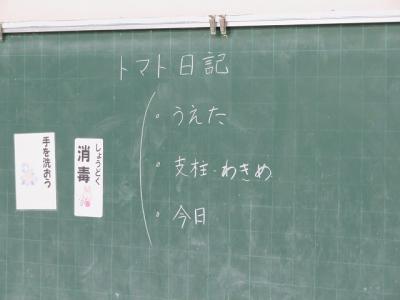 トマト日記
・うえた
・支柱・わきめ
・今日
手を洗おう
しょうどく
消毒